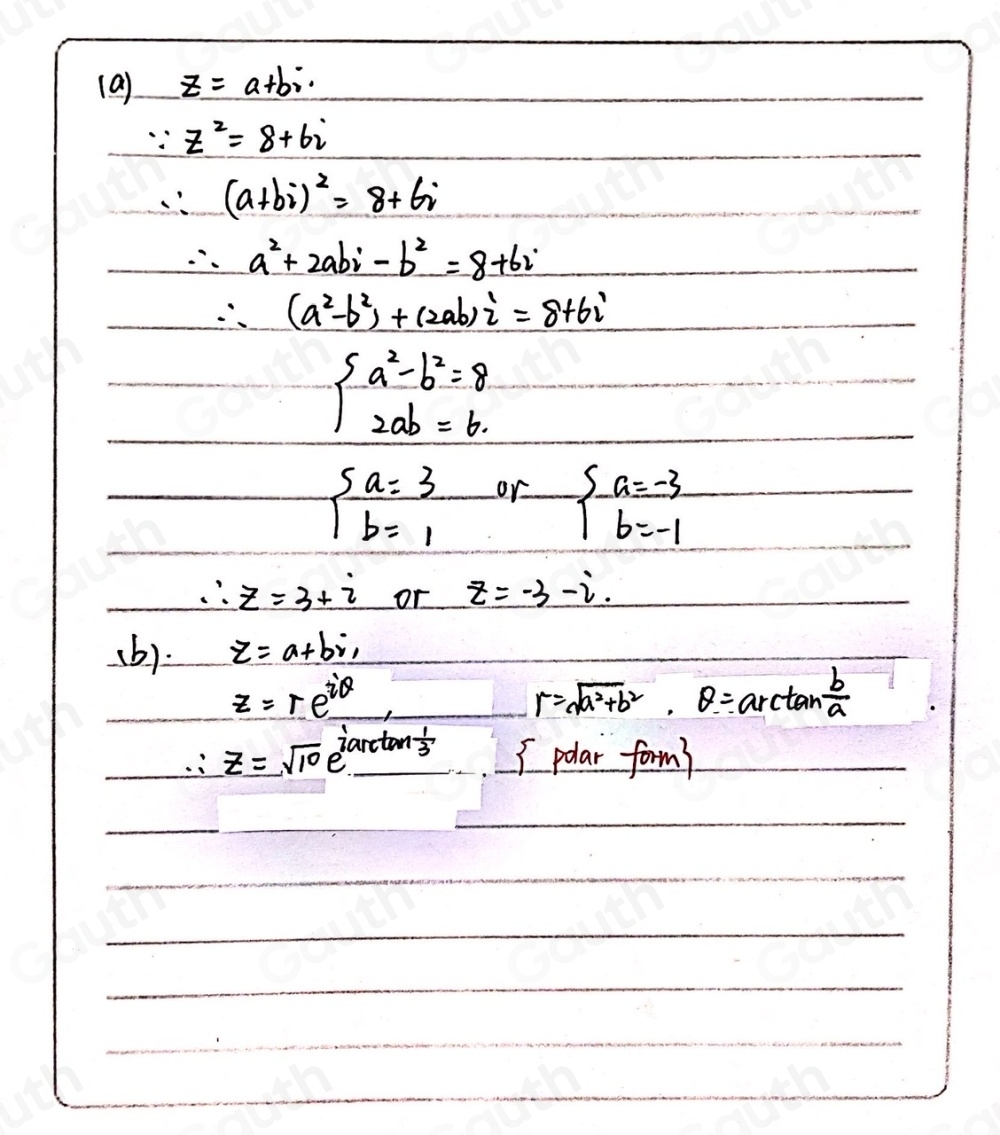 (a) z = a+bi.
∵ z² = 8+6i
∴ (a+bi)² = 8+6i
∴ a²+2abi-b² = 8+6i
∴ (a²-b²)+(2ab)i = 8+6i
{ a²-b²=8
2ab = 6.
{ a=3 or { a=-3
b=1 b=-1
∴ z=3+i or z=-3-i.
(b). z=a+bi,
z=re^{iθ}, r=√(a²+b²). θ=arctan b/a.
∴ z=√10 e^{i arctan 1/3}. { polar form}